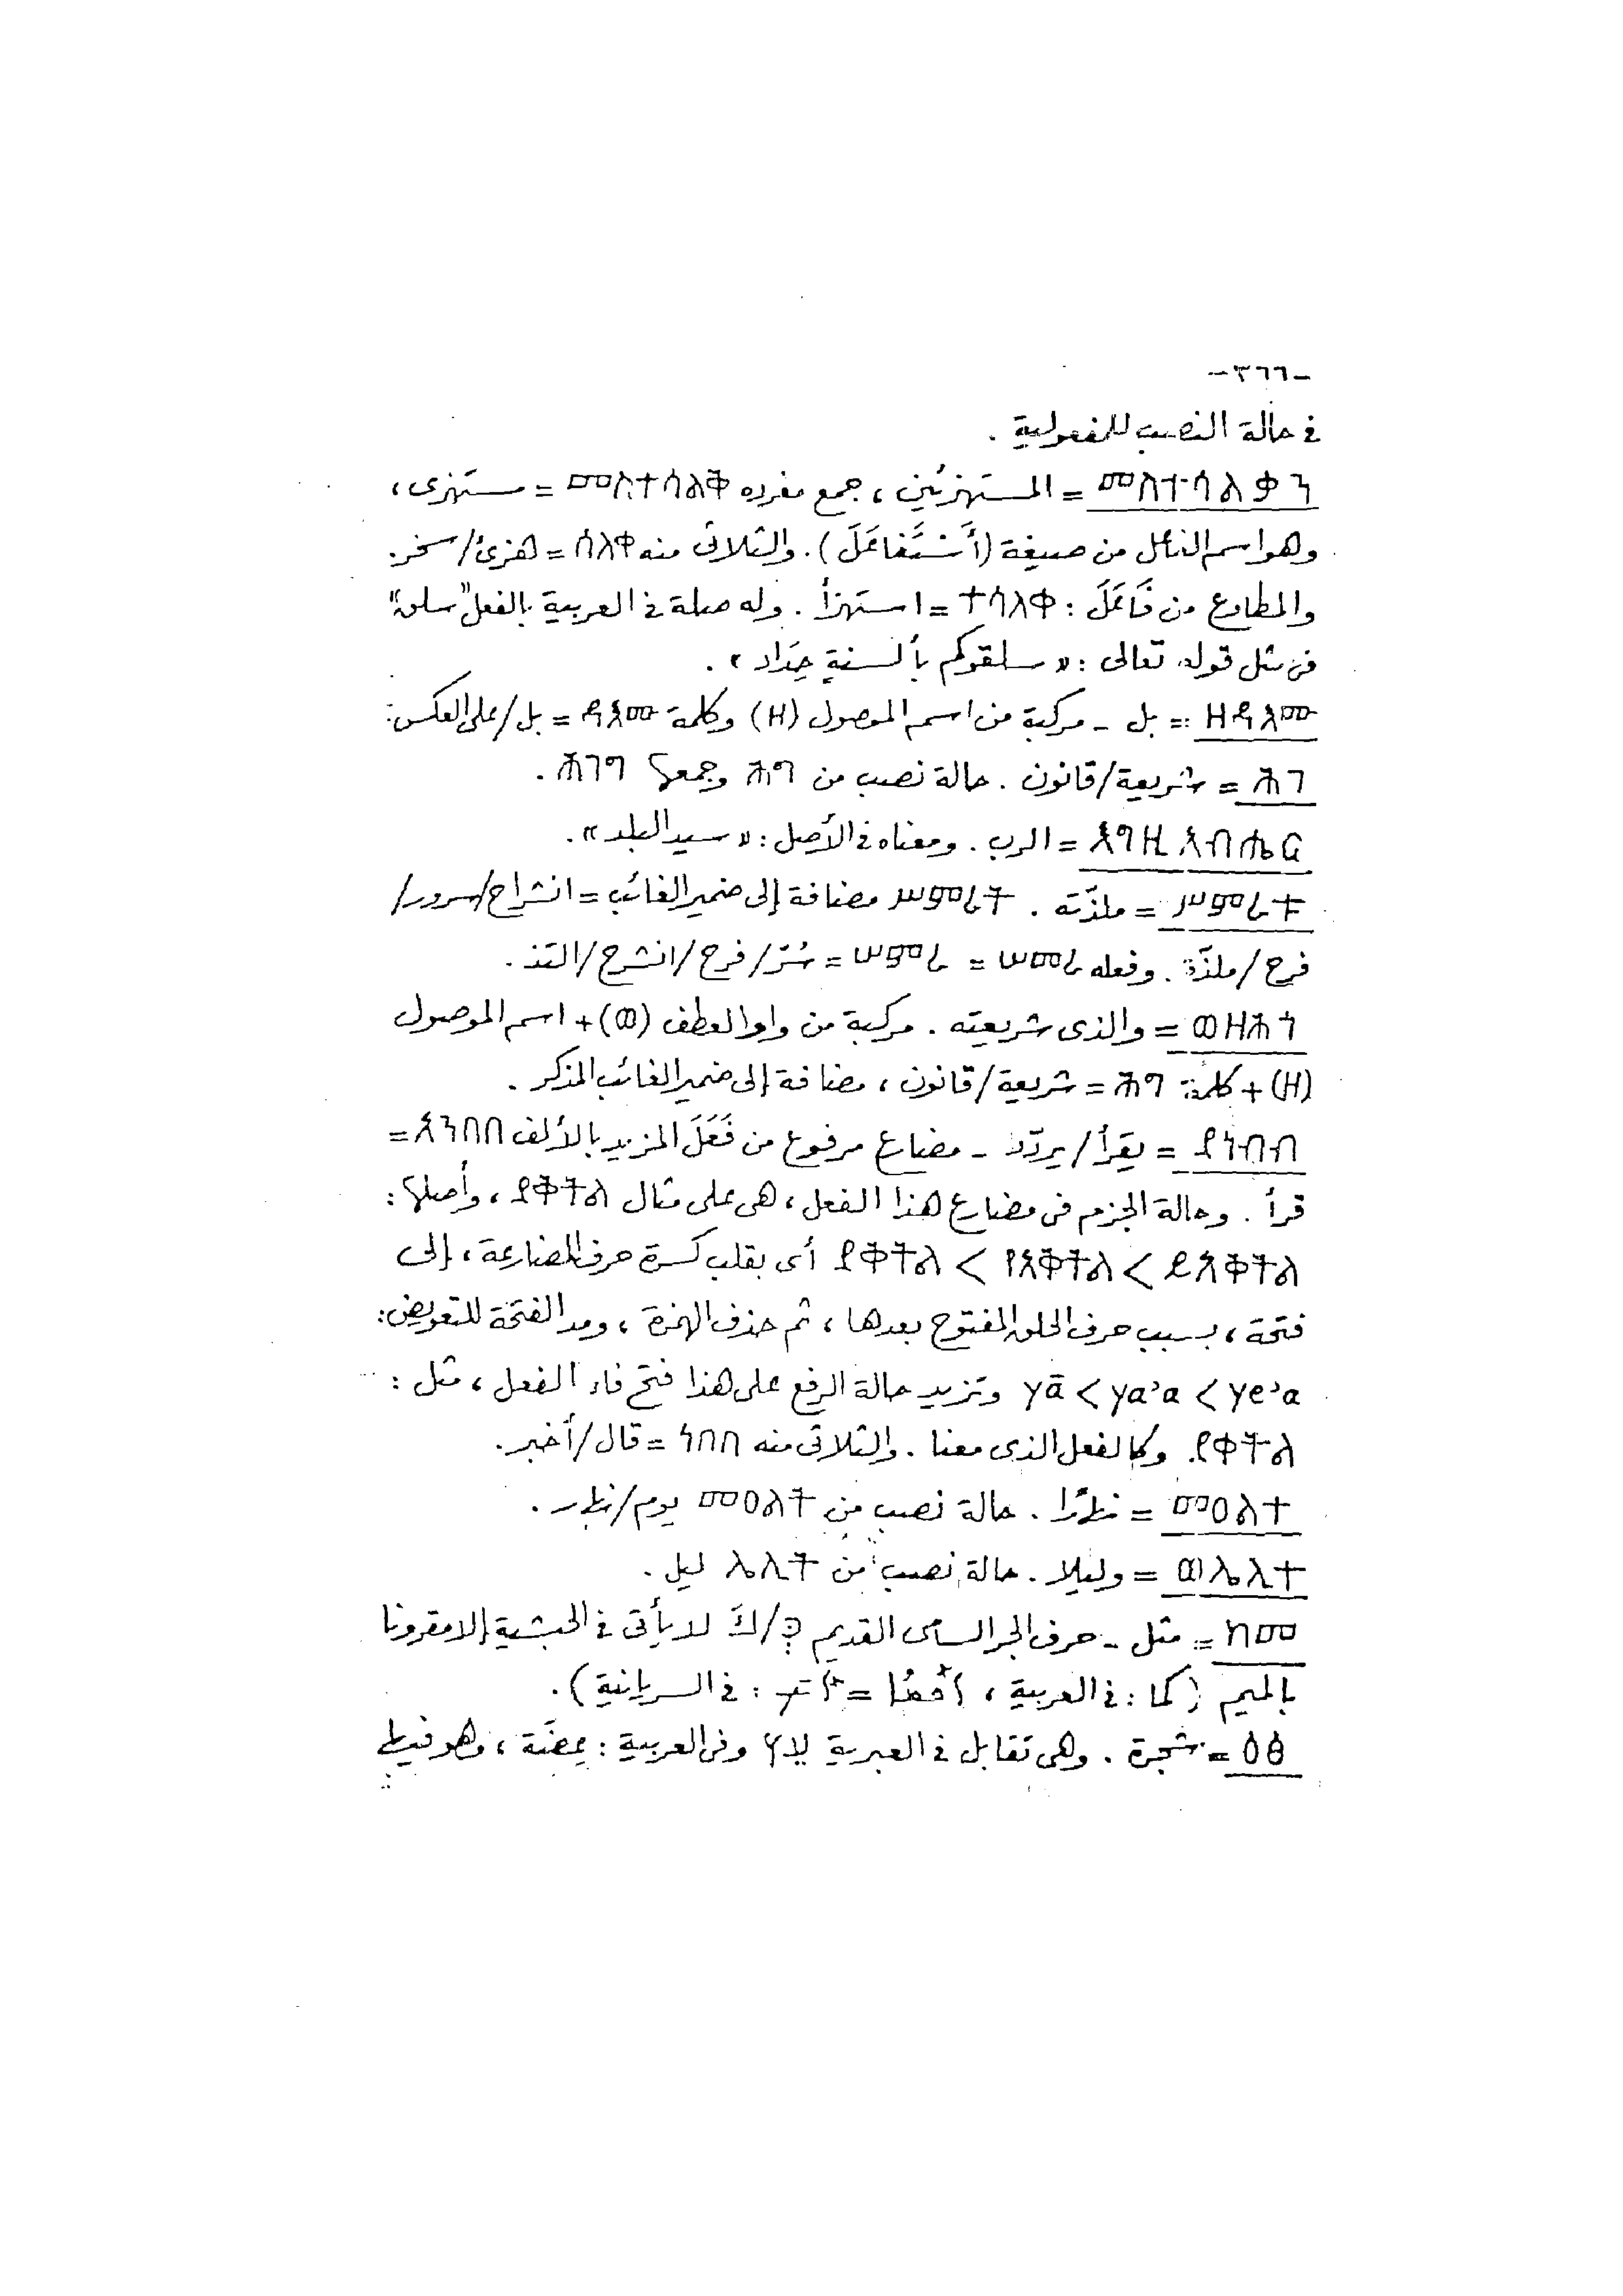 -٣٦٦-
فى حالة النصب للمفعولية .
መስተሳልቃን = المستهزئين ، جمع مفرده መስተሳልቅ = مستهزئ ،
وهو اسم الفاعل من صيغة (أَسْتَفاعَلَ) . والثلاثى منه ሰለቀ = هزئ/سخر .
والمطاوع من فَاعَلَ : ተሳለቀ = استهزأ . وله صلة فى العربية بالفعل "سلق"
فى مثل قوله تعالى : « سلقوكم بألسنةٍ حِدَاد » .
ዘእንበለ = بل - مركبة من اسم الموصول (ዘ) وكلمة = بل/على العكس .
ሕገ = شريعة/قانون . حالة نصب من ሕግ وجمعها ሕገግ .
እግዚአብሔር = الرب . ومعناه فى الأصل : « سيد البلد » .
ሥምረቱ = ملذّته . ሥምረት مضافة إلى ضمير الغائب = انشراح/سرور/
فرح/ملذّة . وفعله ሠመረ = ሠምረ = سُرّ/فرح/انشرح/التذ .
ወዘሕጉ = والذى شريعته . مركبة من واو العطف (ወ) + اسم الموصول
(ዘ) + كلمة ሕግ = شريعة/قانون ، مضافة إلى ضمير الغائب المذكر .
ያነብብ = يقرأ/يردّد - مضارع مرفوع من فَعَلَ المزيد بالألف አንበበ =
قرأ . وحالة الجزم فى مضارع هذا الفعل ، هى على مثال ያቅትል ، وأصلها :
ይአቅትል > የአቅትል > ያቅትል أى بقلب كسرة حرف المضارعة ، إلى
فتحة ، بسبب حرف الحلق المفتوح بعدها ، ثم حذف الهمزة ، ومد الفتحة للتعويض :
ye'a > ya'a > yā وتزيد حالة الرفع على هذا فتح فاء الفعل ، مثل :
ያቀትል وكالفعل الذى معنا . والثلاثى منه ነበበ = قال/أخبر .
መዓልተ = نهارًا . حالة نصب من መዓልት يوم/نهار .
ወሌሊተ = وليلا . حالة نصب من ሌሊት ليل .
ከመ = مثل - حرف الجر السامى القديم כְּ/كَ لا يأتى فى الحبشية إلا مقرونا
بالميم (كما : فى العربية ، : فى السريانية) .
ዕፅ = شجرة . وهى تقابل فى العبرية עץ وفى العربية : عِضَة ، وهو